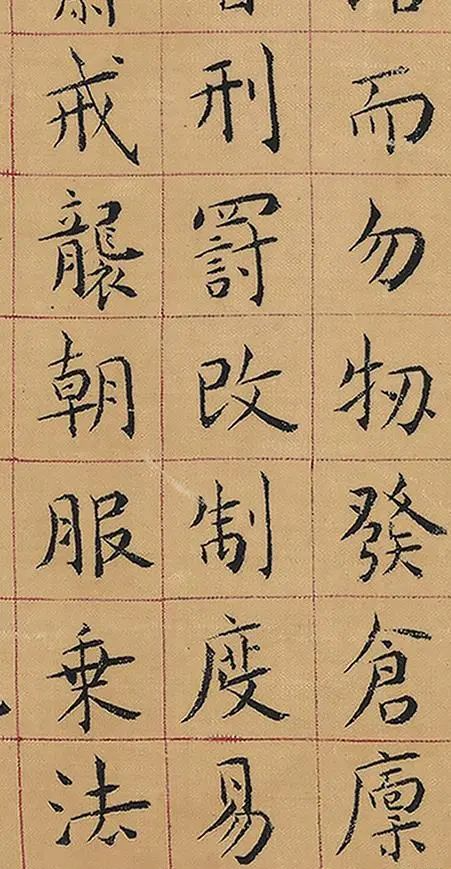 而勿牣發倉廩
刑罰改制度易
戒襲朝服乗法